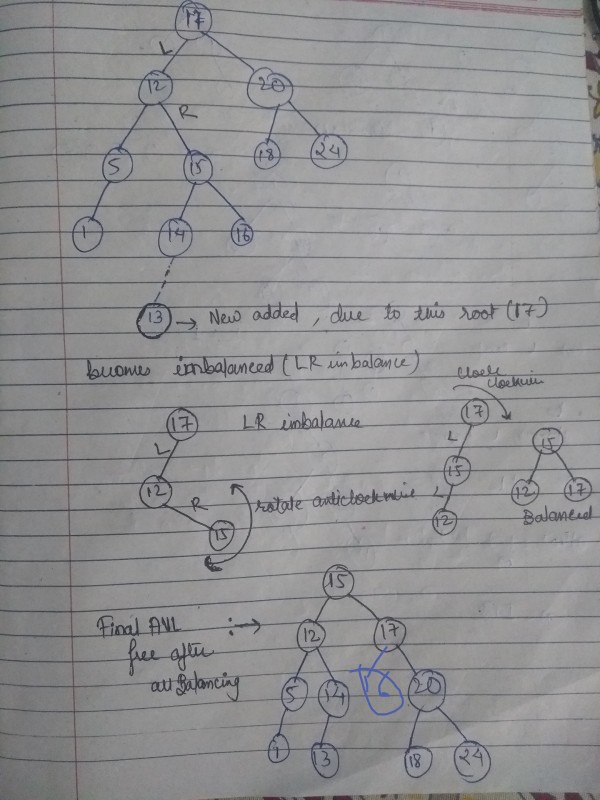 17
L
12 20
R
5 15 18 24
1 14 16
13 → New added, due to this root (17)
becomes imbalanced (LR imbalance)
clockwise
17 LR imbalance 17
L L 15
12 15
R rotate anticlockwise L 12 17
15 12 Balanced
15
Final AVL :→ 12 17
tree after
all Balancing 5 14 16 20
1 13 18 24